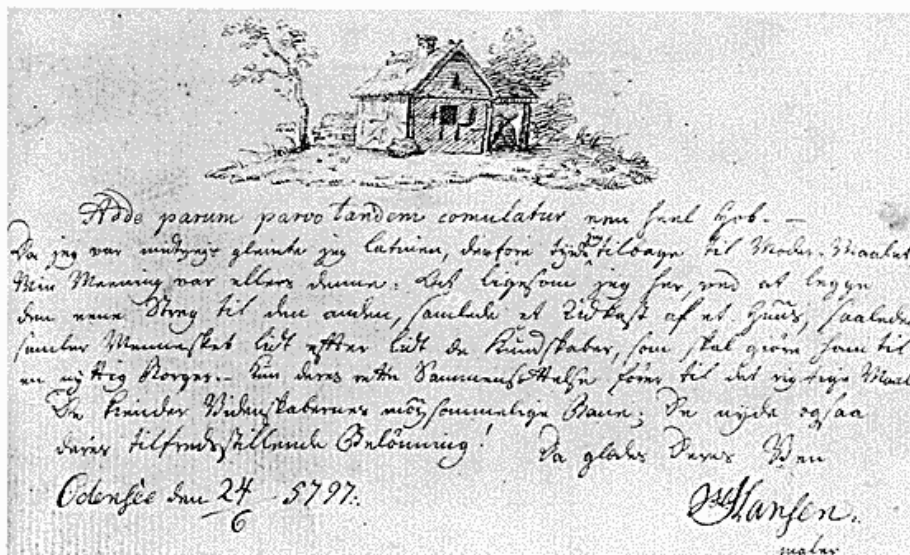 Adde parum parvo tandem comulatur een heel Hob. —
Da jeg var midtveis glemte jeg latinen, derfore tyer jeg tilbage til Moder-Maalet
Min Meening var ellers denne: At ligesom jeg her, ved at legge
den eene Streg til den anden, samlede et Udkast af et Huus, saaledes
samler Mennesket lidt efter lidt de Kundskaber, som skal giøre ham til
en nyttig Borger. – Kun deres rette Sammensættelse fører til det rigtige Maal
De kiender Videnskabernes møysommelige Bane; De nyde ogsaa
deres tilfredsstillende Belønning! Da glædes Deres Ven
Odensee den 24/6 5797.
Hansen.
maler